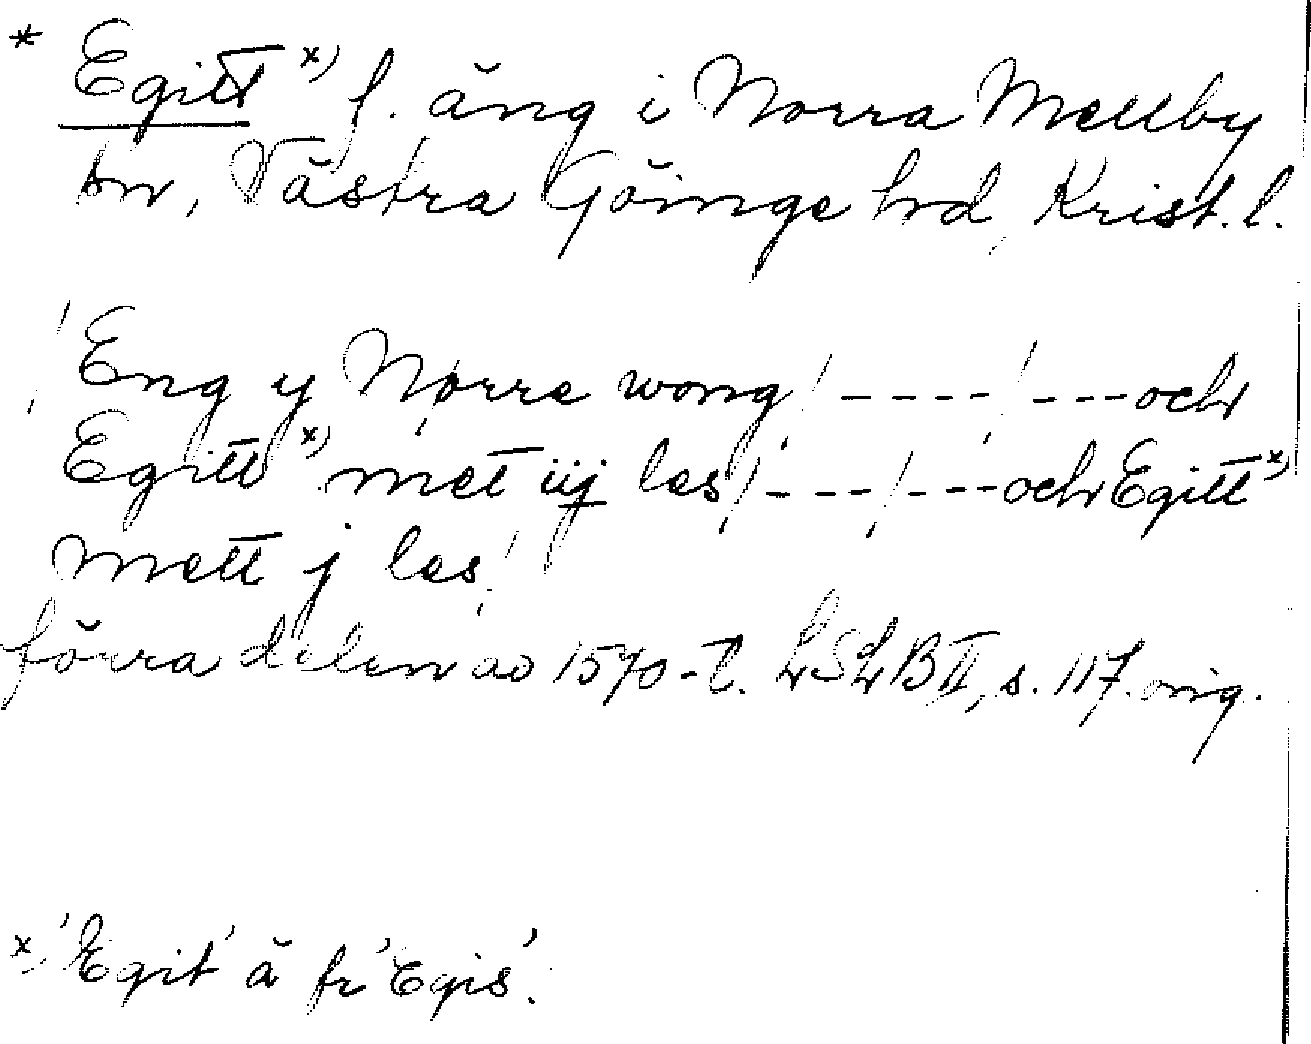 * Egitt x) f. äng i Norra Mellby
sn, Västra Göinge hrd, Krist. l.
Eng y Nørre wong / ---- / --- och
Egitt x) met iij les / --- / --- och Egitt x)
mett j les
förra delen av 1570-t. LSLB II, s. 117. orig.
x) 'Egit' ä fr 'Egis'.